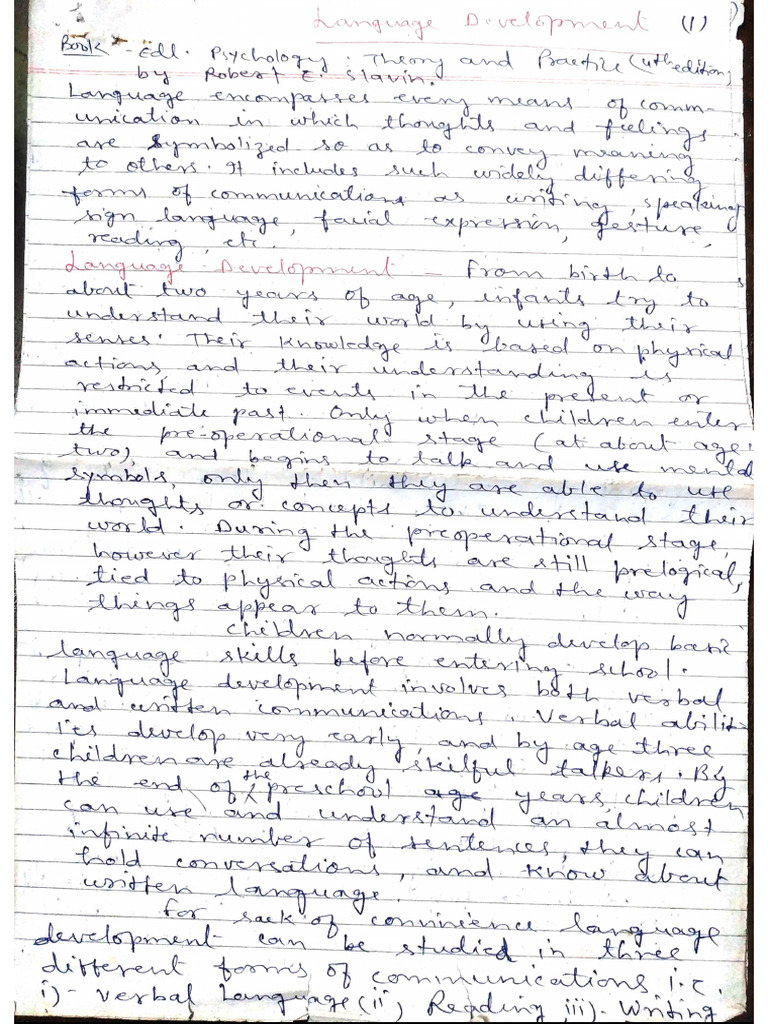 Language Development (1)
Book - Edl. Psychology : Theory and Practice (4th edition)
by Robert E. Slavin.
Language encompasses every means of comm-
unication in which thoughts and feelings
are symbolized so as to convey meaning
to others. It includes such widely differing
forms of communications as writing, speaking
sign language, facial expression, gesture,
reading, etc.
Language Development - From birth to
about two years of age, infants try to
understand their world by using their
senses. Their knowledge is based on physical
actions and their understanding is
restricted to events in the present or
immediate past. Only when children enter
the pre-operational stage (at about age
two), and begins to talk and use mental
symbols, only then they are able to use
thoughts or concepts to understand their
world. During the preoperational stage,
however their thoughts are still prelogical,
tied to physical actions and the way
things appear to them.
Children normally develop basic
language skills before entering school.
Language development involves both verbal
and written communications. Verbal abilit-
ies develop very early, and by age three
children are already skilful talkers. By
the end of the preschool age years, children
can use and understand an almost
infinite number of sentences, they can
hold conversations, and know about
written language.
For sack of convinience language
development can be studied in three
different forms of communications i.e.
i)- Verbal Language (ii) Reading iii)- Writing